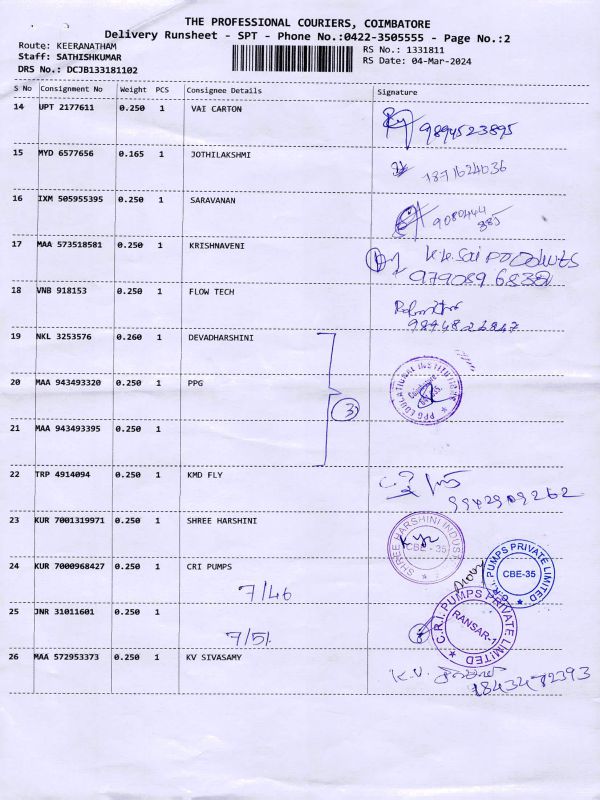 THE PROFESSIONAL COURIERS, COIMBATORE
Delivery Runsheet - SPT - Phone No.:0422-3505555 - Page No.:2
Route: KEERANATHAM
RS No.: 1331811
Staff: SATHISHKUMAR
RS Date: 04-Mar-2024
DRS No.: DCJB133181102
S No Consignment No Weight PCS Consignee Details Signature
14 UPT 2177611 0.250 1 VAI CARTON
9894523895
15 MYD 6577656 0.165 1 JOTHILAKSHMI
16 IXM 505955395 0.250 1 SARAVANAN
9080444
885
17 MAA 573518581 0.250 1 KRISHNAVENI
K.K. Sai Products
979089 6838
18 VNB 918153 0.250 1 FLOW TECH
19 NKL 3253576 0.260 1 DEVADHARSHINI
20 MAA 943493320 0.250 1 PPG
PPG EDUCATIONAL INSTITUTIONS
3
21 MAA 943493395 0.250 1
22 TRP 4914094 0.250 1 KMD FLY
9942909262
23 KUR 7001319971 0.250 1 SHREE HARSHINI
SHREE HARSHINI INDUST
CBE - 35
24 KUR 7000968427 0.250 1 CRI PUMPS
7/46
C.R.I. PUMPS PRIVATE LIMITED
CBE-35
25 JNR 31011601 0.250 1
7/51
C.R.I. PUMPS PRIVATE LIMITED
RANSAR-1
26 MAA 572953373 0.250 1 KV SIVASAMY
K.V.